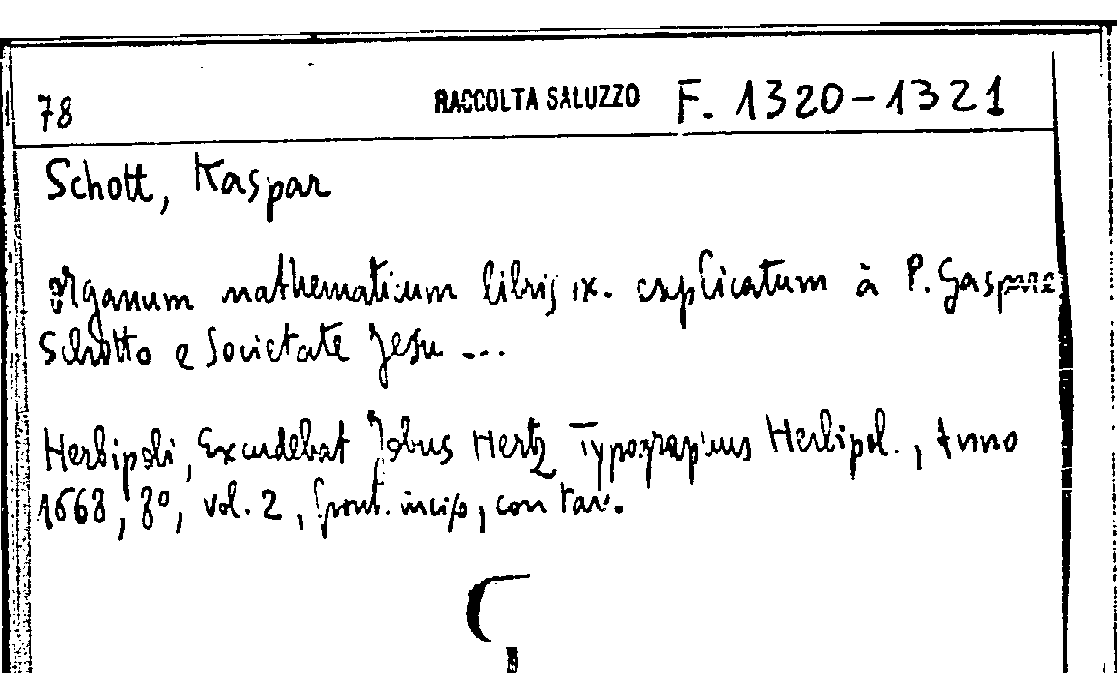 78 RACCOLTA SALUZZO F. 1320-1321
Schott, Kaspar
Organum mathematicum libris ix. explicatum à P. Gaspare
Schotto e Societate Jesu ...
Herbipoli, Excudebat Jobus Hertz Typographus Herbipol., Anno
1668, 8º, vol. 2, front. inciso, con tav.